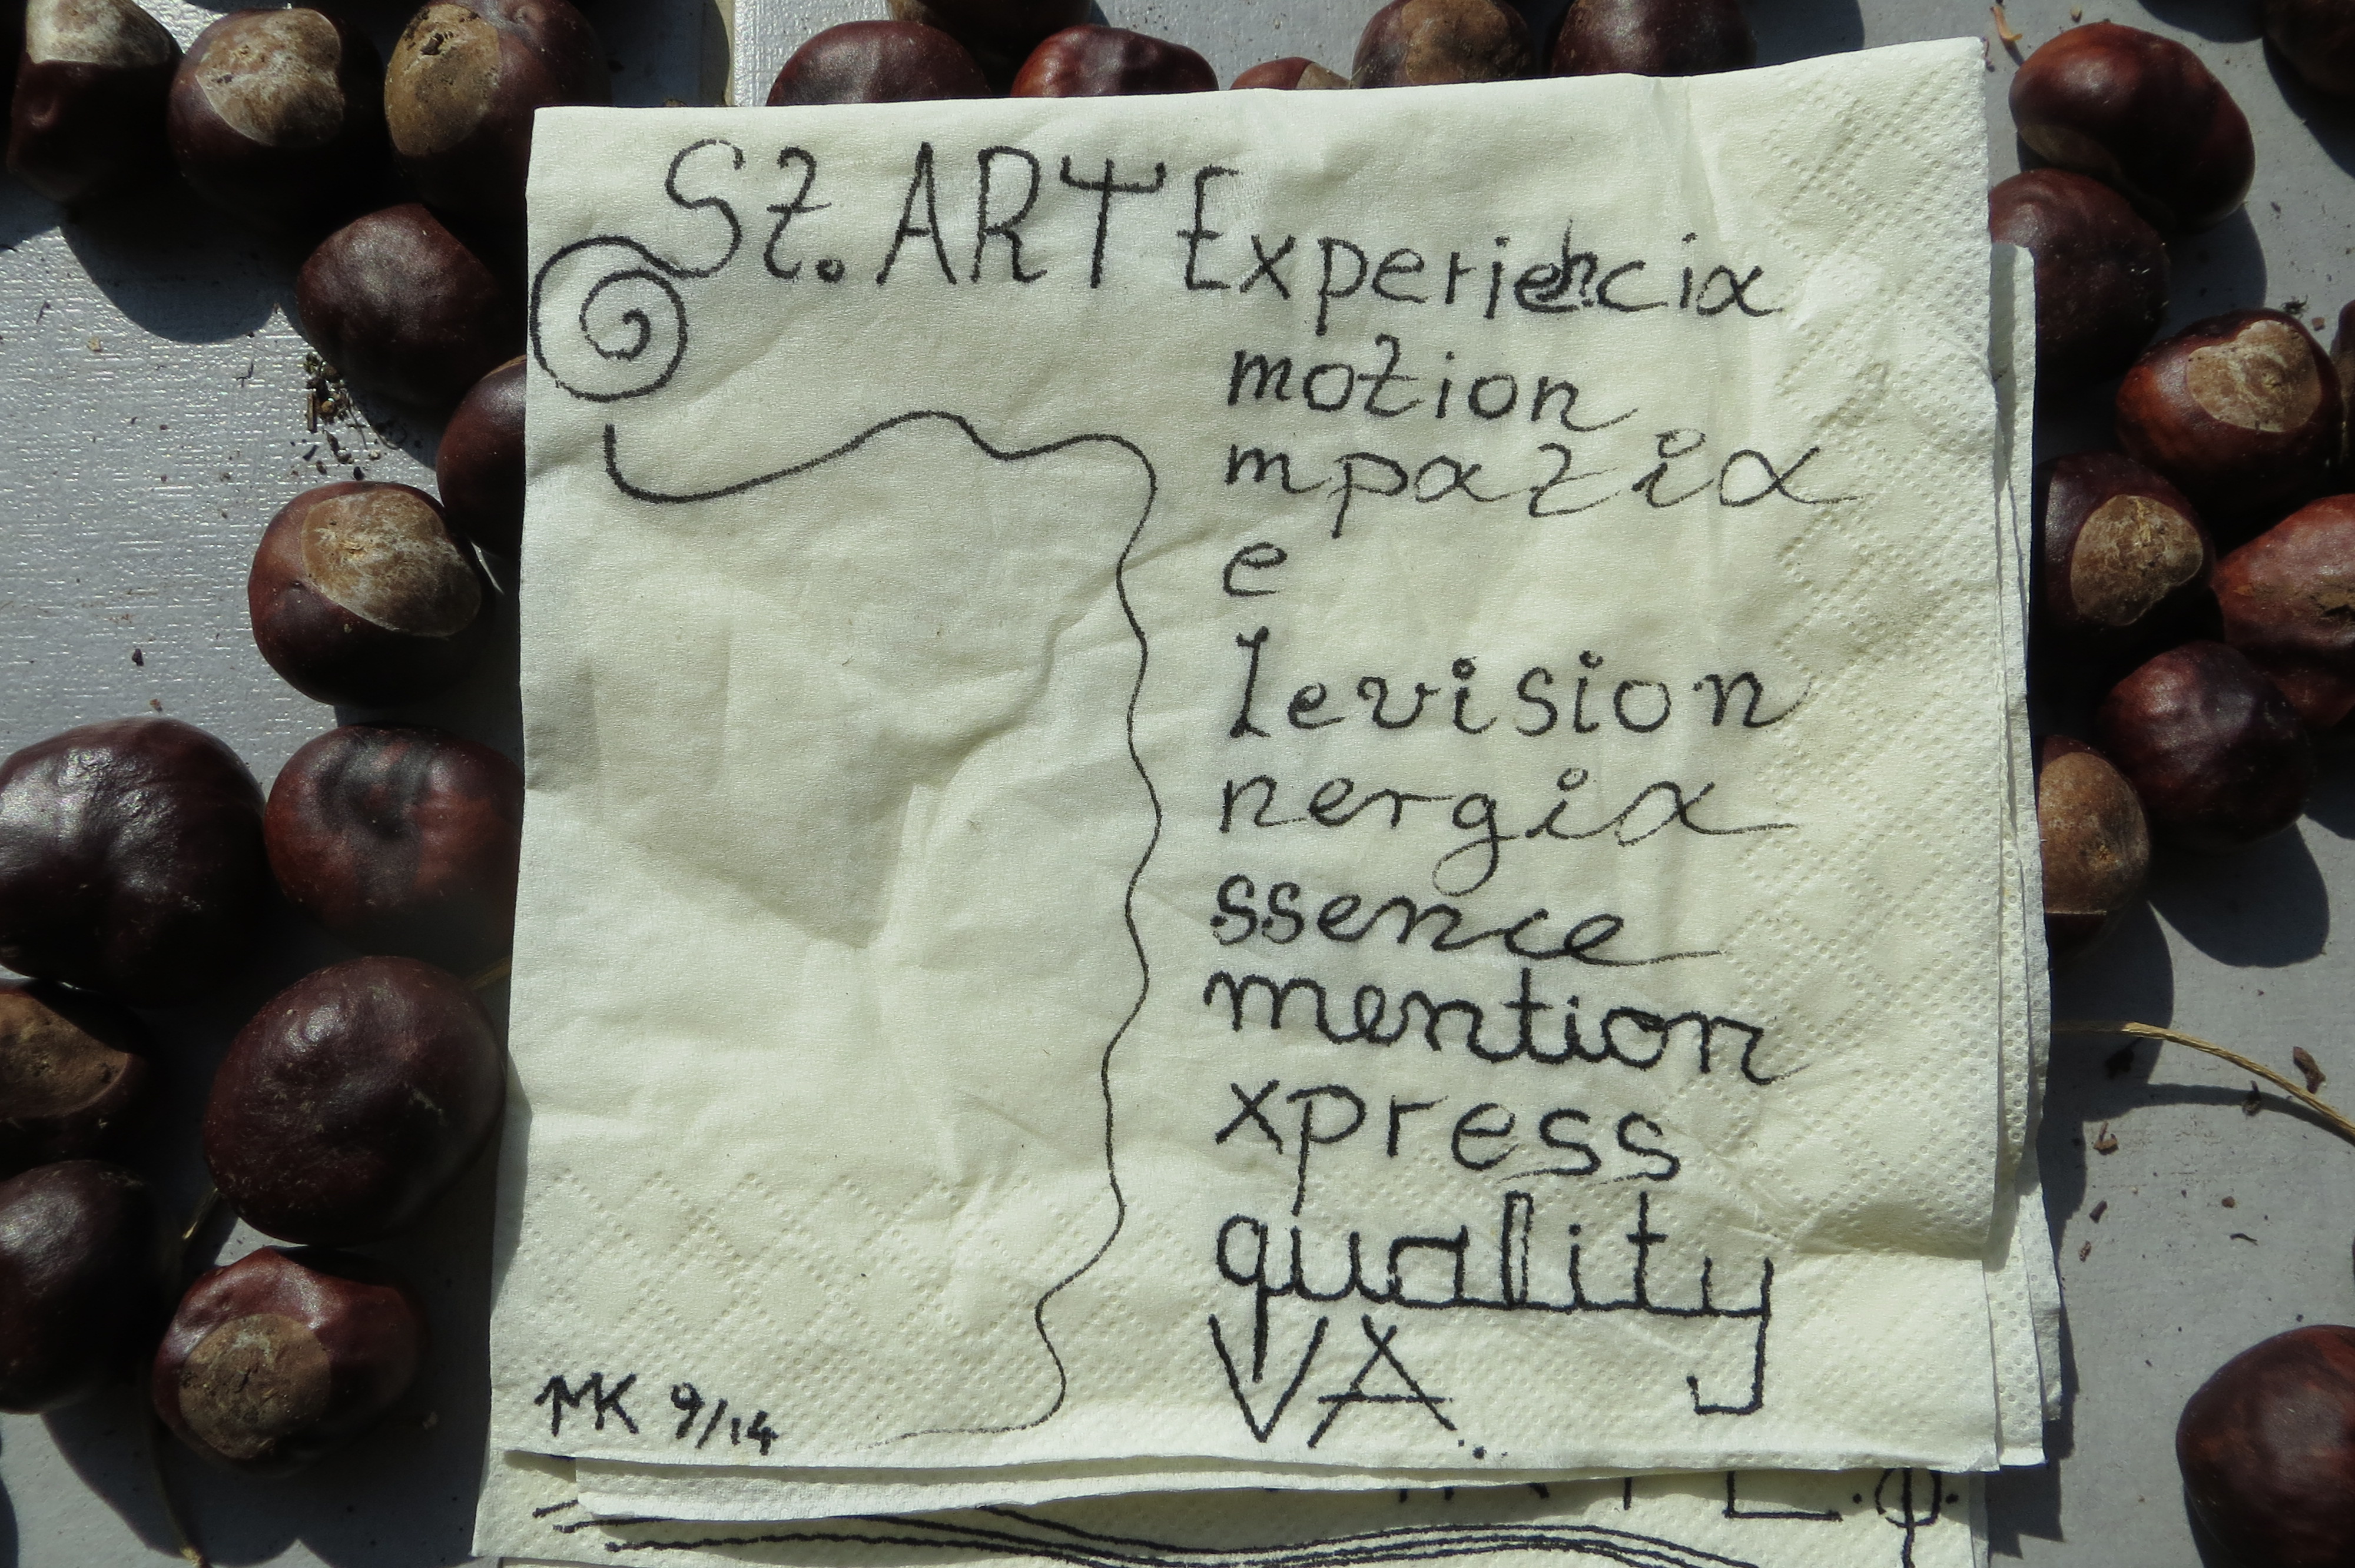 Sz. ART Experiencia
mozion
mpazia
e
levision
nergia
ssence
mention
xpress
quality
VA..
MK 9/14